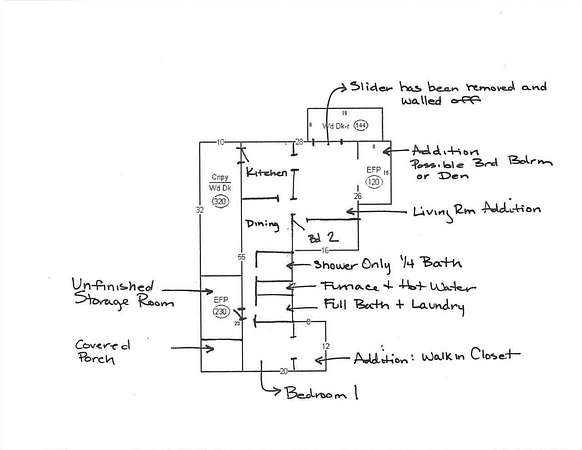 Slider has been removed and
walled off
18
8
Wd Dk-r 144
10
28
8
Addition
Possible 3rd Bdrm
or Den
Kitchen
Cnpy
Wd Dk
(320)
EFP
(120)
15
32
26
Living Rm Addition
Dining
Bd 2
16
66
Shower Only 1/4 Bath
Unfinished
Storage Room
Furnace + Hot Water
EFP
(230)
Full Bath + Laundry
23
8
Covered
Porch
12
Addition: Walk in Closet
20
Bedroom 1